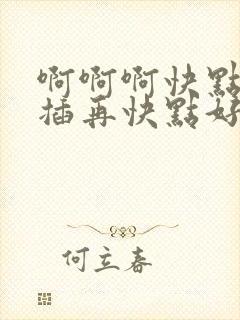 啊啊啊快點
插再快點好
何立春